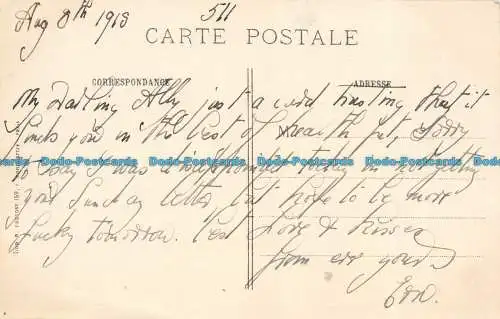 Aug 8th 1918
511
CARTE POSTALE
CORRESPONDANCE
ADRESSE
My Darling Ally just a card trusting that it
finds you in the best of health pet, Sorry
to say I was disappointed today in not getting
your Sunday letter, but hope to be more
lucky tomorrow. Best Love & Kisses
from ever yours
Ern.
Dodo-Postcards Dodo-Postcards Dodo-Postcards Dodo-Postcards